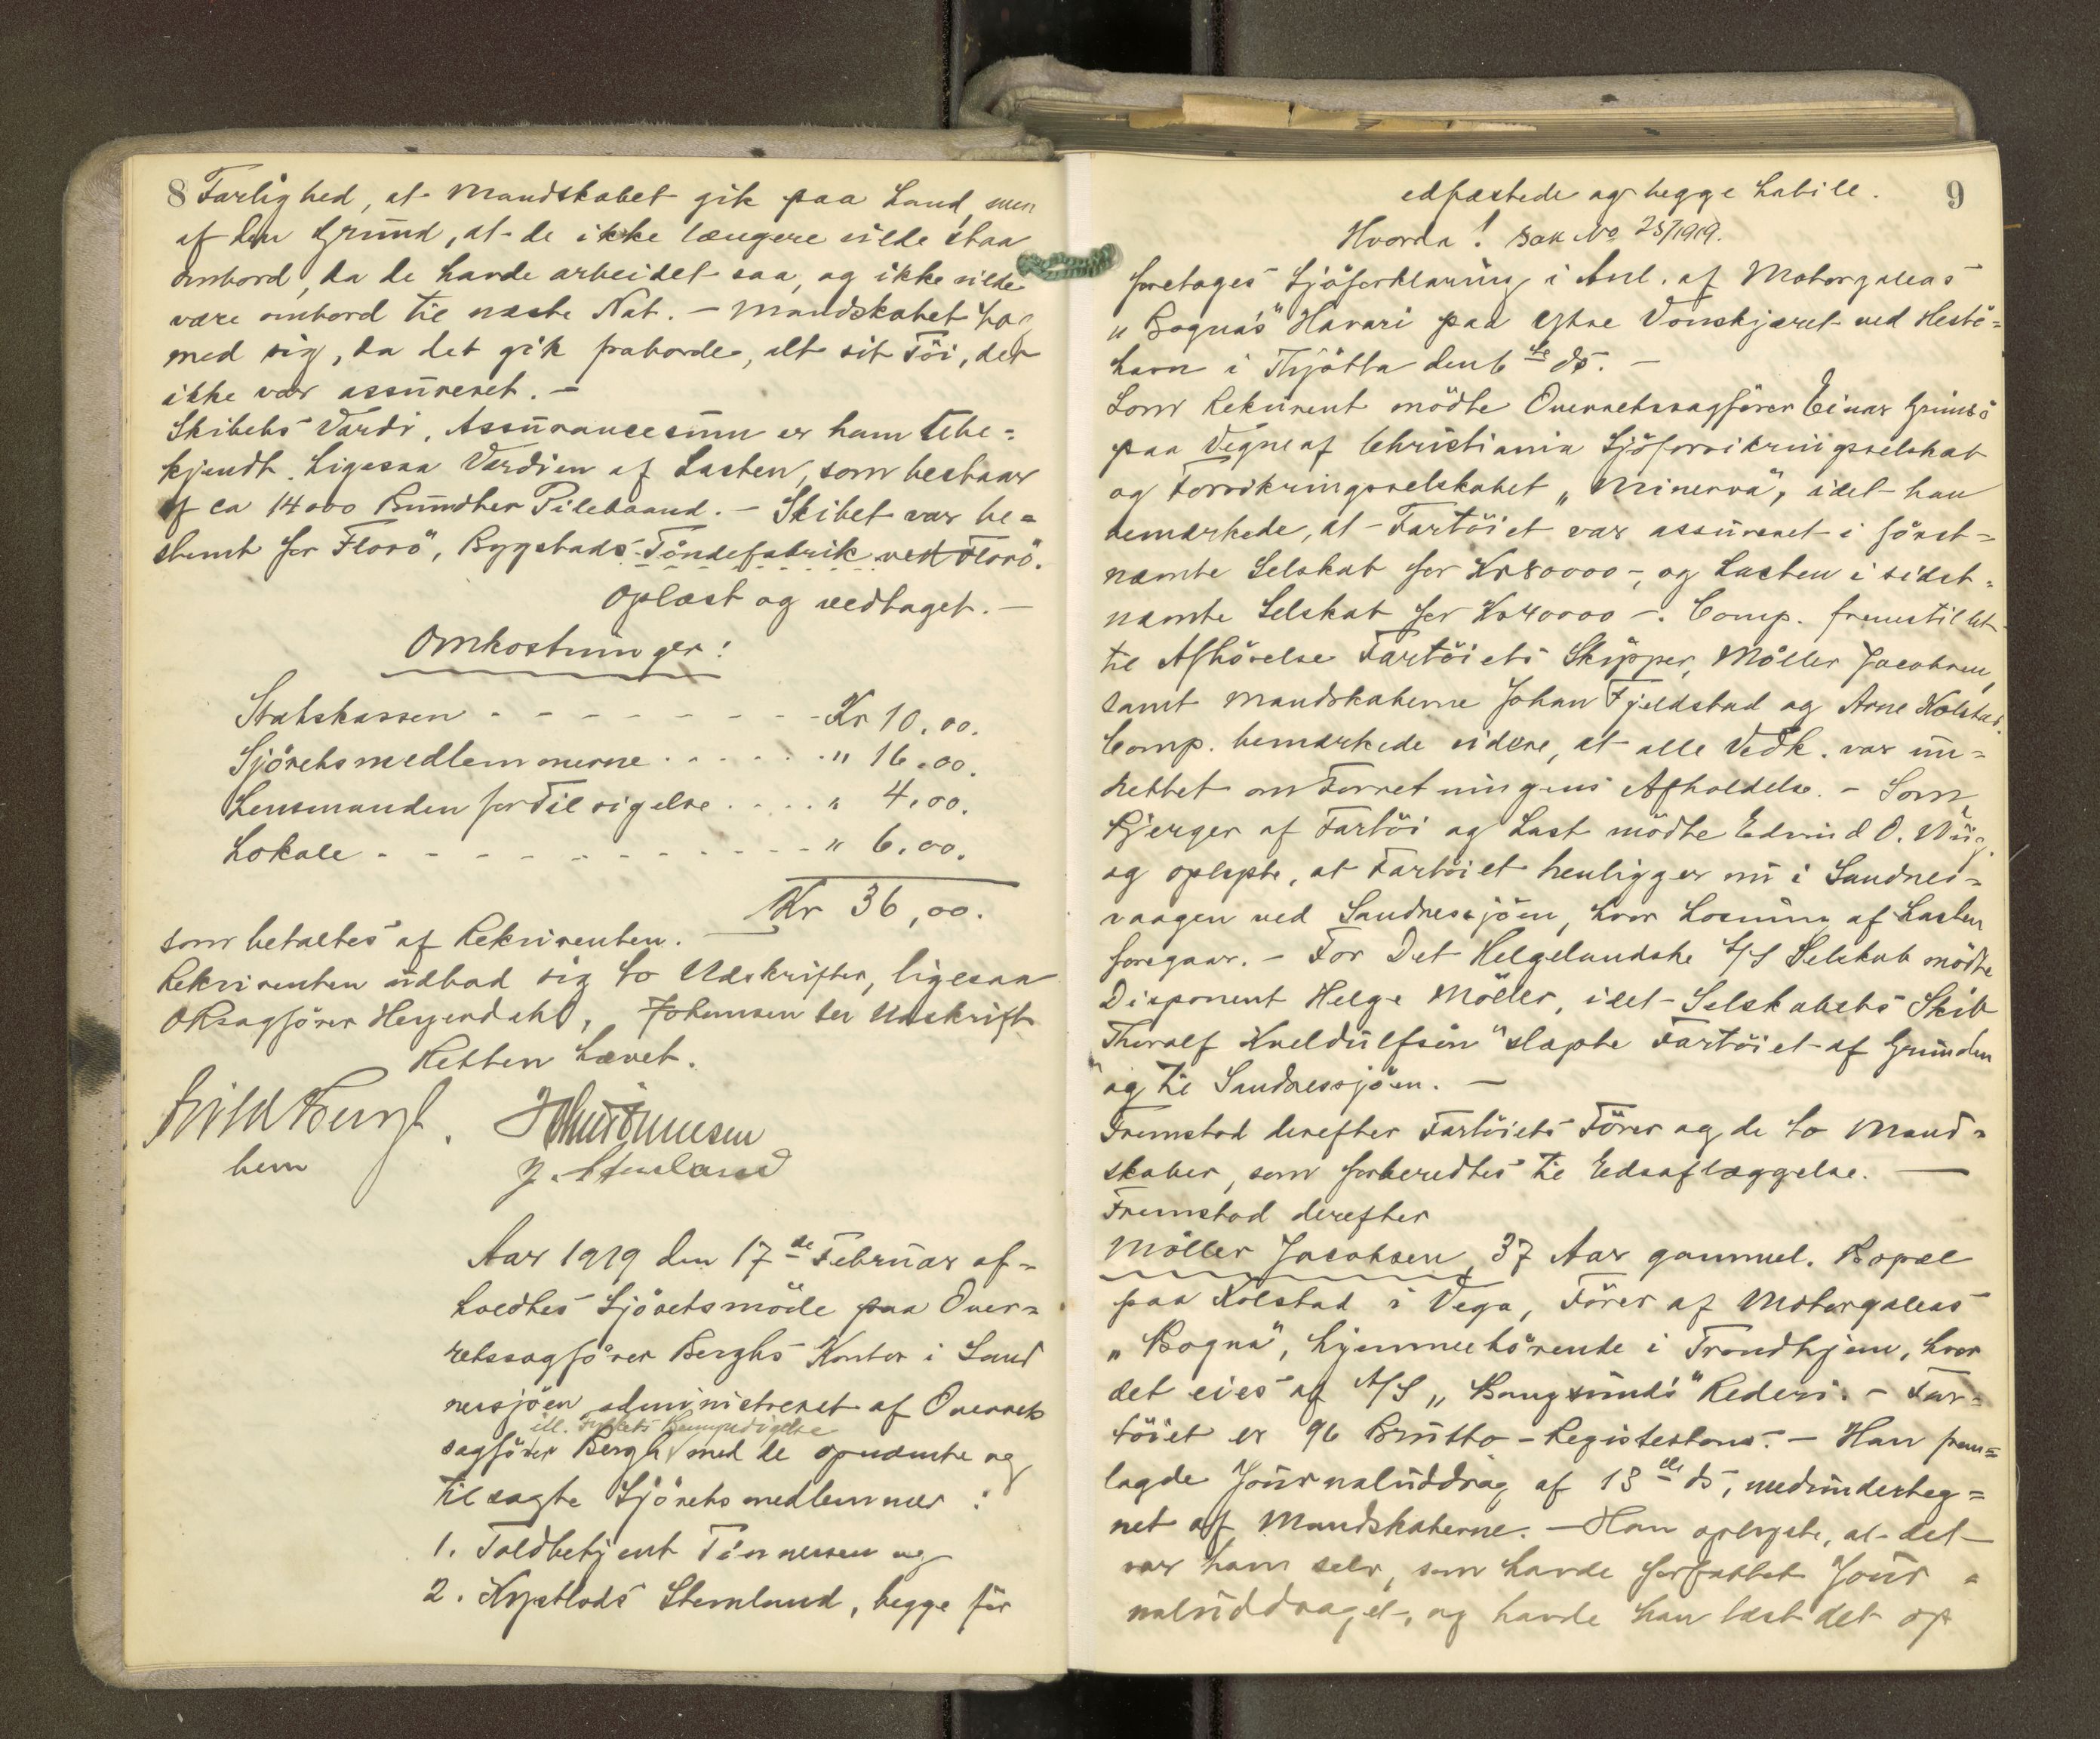 8
Farlighed, at Mandskabet gik paa Land, men
af den Grund, at de ikke længere vilde staa
ombord, da de havde arbeidet saa, og ikke vilde
være ombord til næste Nat. - Mandskabet tog
med sig, da det gik fraborde, alt sit Töi, der
ikke var assureret. -
Skibets Værdi, Assurancesum er ham ube=
kjendt. Ligesaa Værdien af Lasten, som bestaar
af ca 14000 Bundter Pilebaand. - Skibet var be=
stemt for Florö, Bygstads Töndefabrik ved Florö.
Oplæst og vedtaget. -
Omkostninger:
Statskassen - - - - - - - - - Kr 10.00.
Sjöretsmedlemmerne . . . . . . " 16.00.
Lensmanden for Tilsigelse . . . . " 4.00.
Lokale - - - - - - - - - - - - " 6.00.
Kr 36,00.
som betaltes af Rekvirenten.
Rekvirenten udbad sig to Udskrifter, ligesaa
ORsagförer Heyerdahl, Johansen en Udskrift
Retten hævet.
Bergh.
bem
J. Stenland
Aar 1919 den 17de Februar af=
holdtes Sjöretsmöde paa Over=
retssagförer Berghs Kontor i Sand
nessjöen administreret af Overrets
ifl. Fylkets Bemyndigelse
sagförer Bergh med de opnævnte og
tilsagte Sjöretsmedlemmer :
1. Toldbetjent Tönnesen og
2. Kystlods Stenland, begge för
9
edfæstede og begge habile.
Hvorda! Sak No 25/1919.
foretoges Sjöforklaring i Anl. af Motorgaleas
"Bogna's" Havari paa Ytre Vonskjæret ved Hestö=
havn i Thjötta den 6te ds. -
Som Rekvirent mödte Overretssagförer Einar Grimsö
paa Vegne af Christiania Sjöforsikringsselskab
og Forsikringsselskabet "Minerva", idet han
bemærkede, at Fartöiet var assureret i först=
nævnte Selskab for Kr 80000 -, og Lasten i sidst=
nævnte Selskab for Kr 40000 -. Comp. fremstillet
til Afhörelse Fartöiets Skipper, Möller Jacobsen,
samt Mandskaberne Johan Fjeldstad og Arne Kolstad.
Comp. bemærkede videre, at alle Vedk. var un=
rettet om Forretningens Afholdelse. - Som
Bjerger af Fartöi og Last mödte Edvind O. Wiig
og oplyste, at Fartöiet henligger nu i Sandnes=
vaagen ved Sandnessjöen, hvor Losning af Lasten
foregaar. - For Det Helgelandske D/S Selskab mödte
Disponent Helge Möller, idet Selskabets Skib
"Thorolf Kveldulfsön" slæpte Fartöiet af Grunden
og til Sandnessjöen. -
Fremstod derefter Fartöiets Förer og de to Mand=
skaber, som forberedtes til Edsaflæggelse. -
Fremstod derefter
Möller Jacobsen, 37 Aar gammel. Bopæl
paa Kolstad i Vega, Förer af Motorgaleas
"Bogna", hjemmehörende i Trondhjem, hvor
det eies af A/S "Bangsund's" Rederi. - Far=
töiet er 96 Brutto-Registertons. - Han frem=
lagde Journaluddrag af 13de ds, medunderteg=
net af Mandskaberne. - Han oplyste, at det
var ham selv, som havde forfattet Jour=
naluddraget, og havde han læst det op